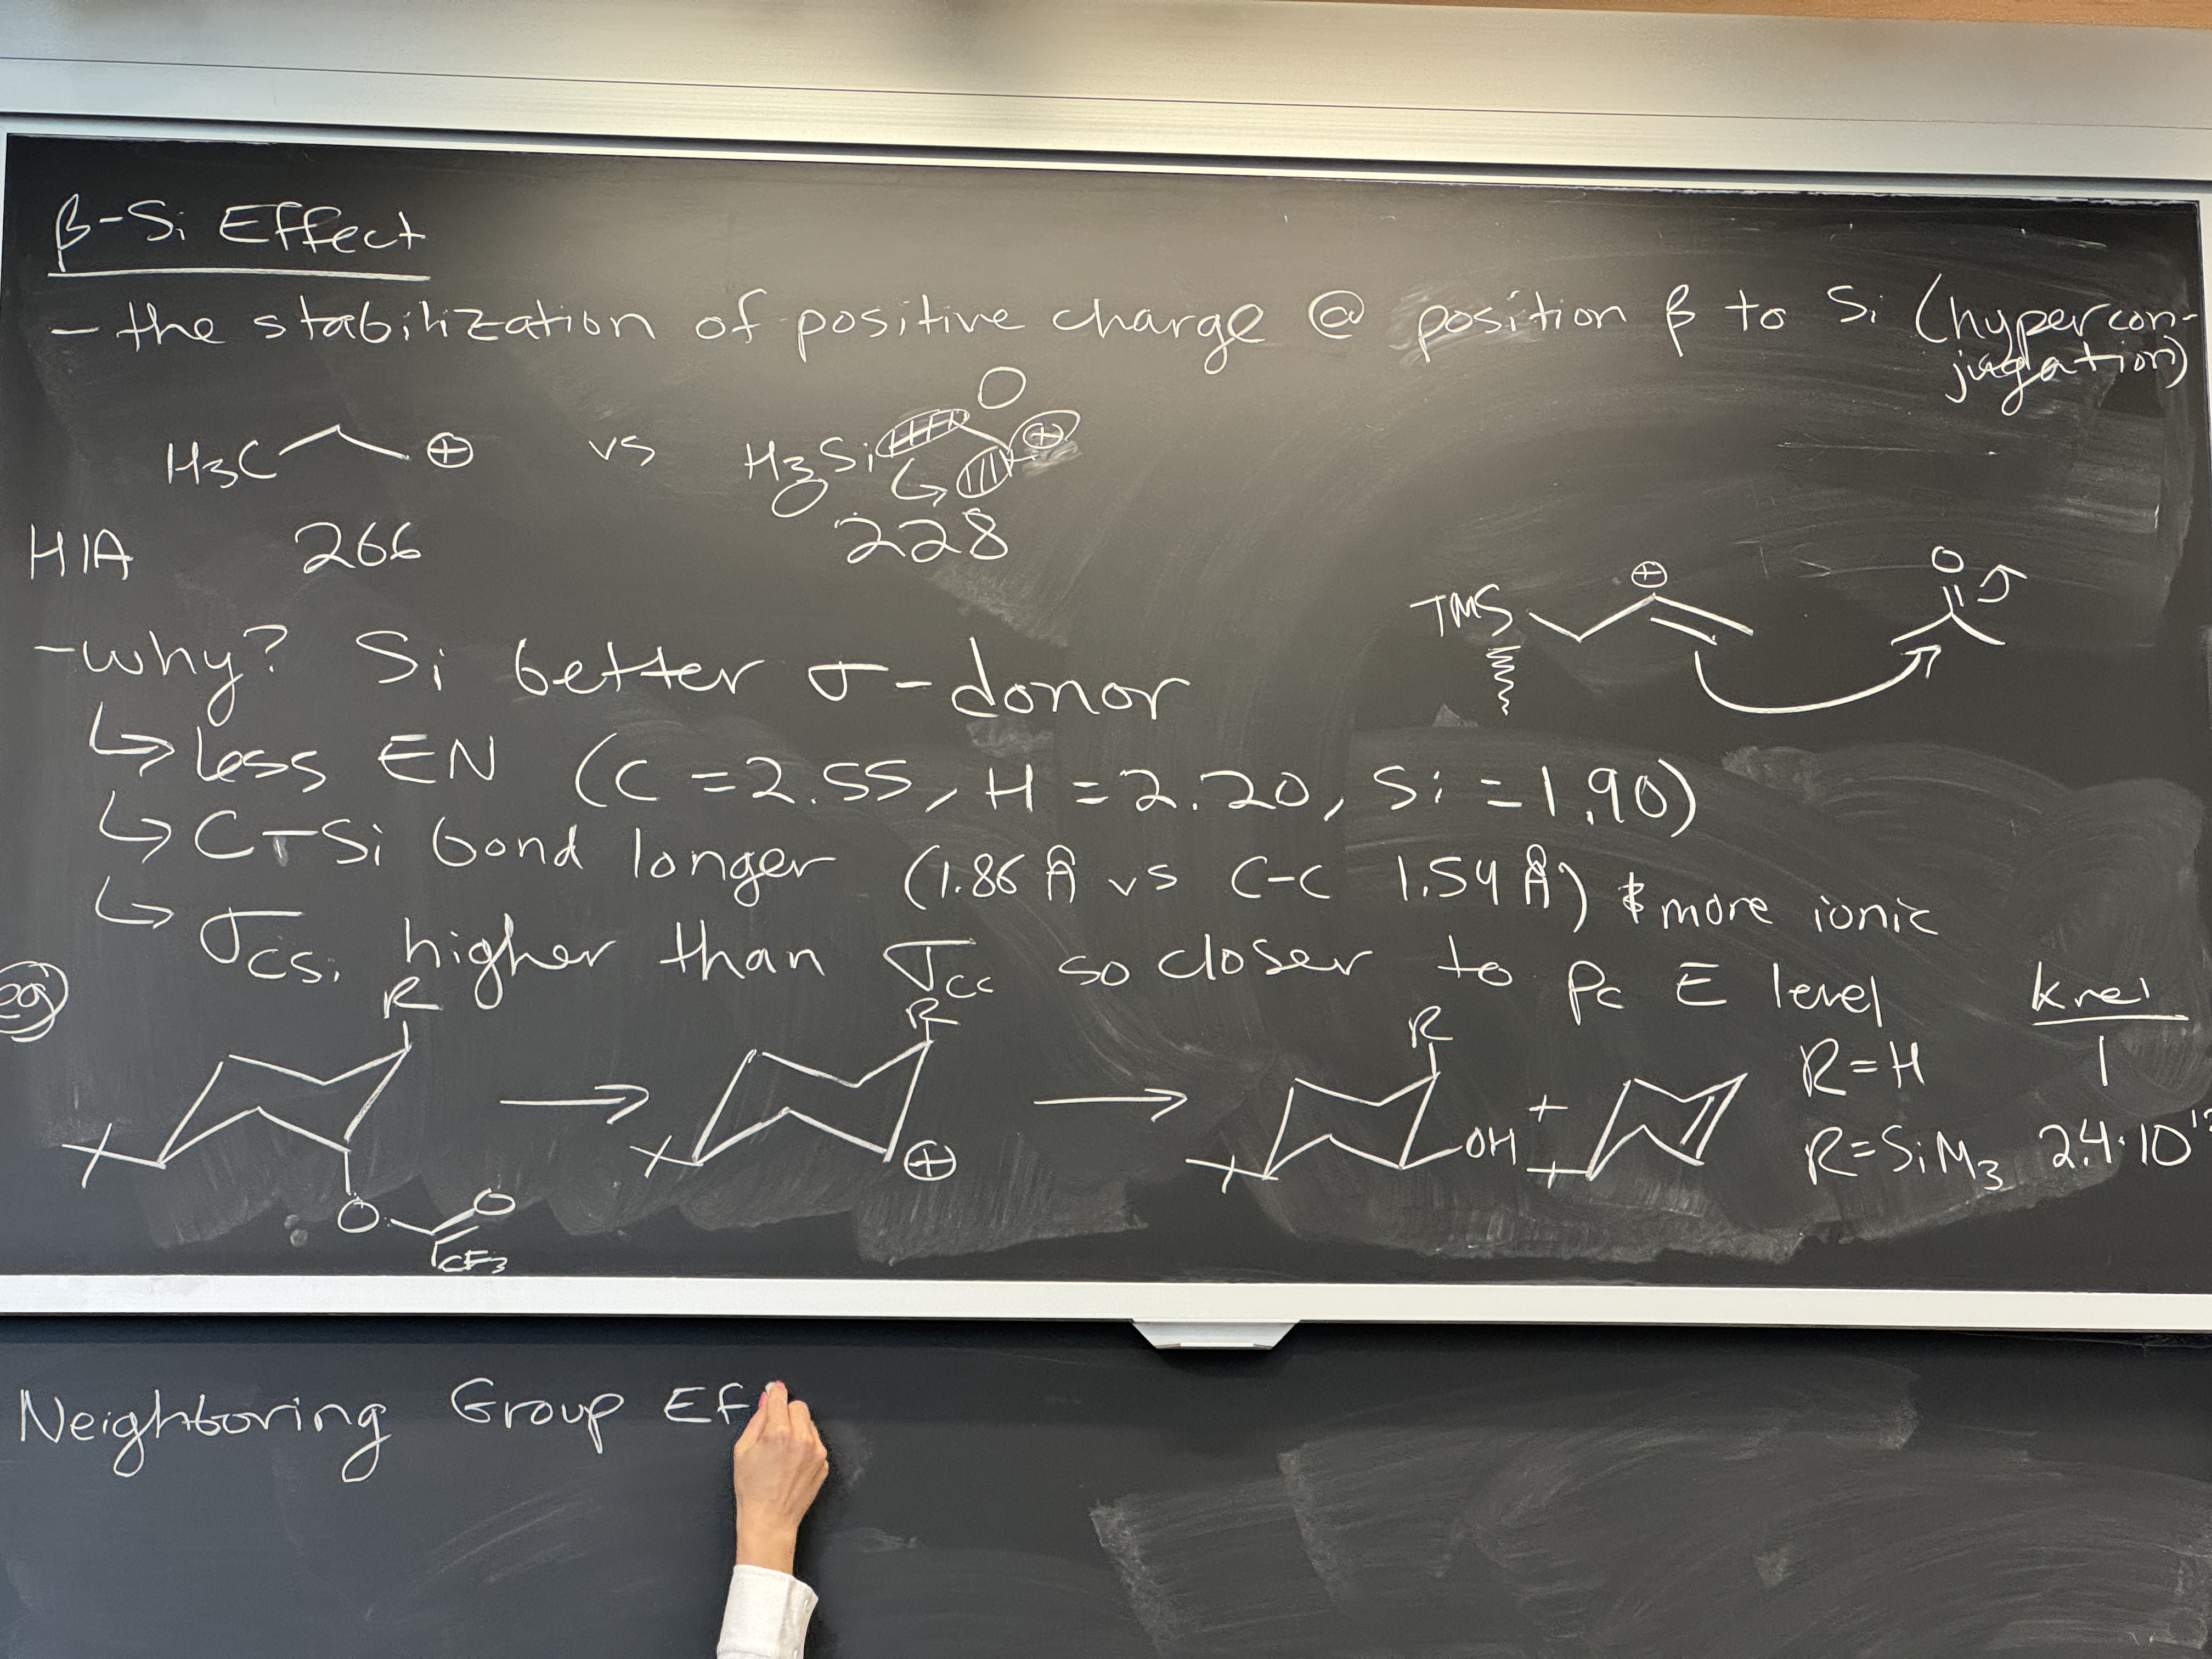 β-Si Effect
- the stabilization of positive charge @ position β to Si (hypercon-
jugation)
H3C ⊕ vs H3Si ⊕
HIA 266 228
TMS ⊕ O
- why? Si better σ-donor
↳ less EN (C = 2.55, H = 2.20, Si = 1.90)
↳ C-Si bond longer (1.86 Å vs C-C 1.54 Å) & more ionic
↳ σCSi higher than σCC so closer to pC E level
eg
R R ⊕ R OH + krel
O O CF3
R=H 1
R=SiM3 2.4·10
Neighboring Group Ef